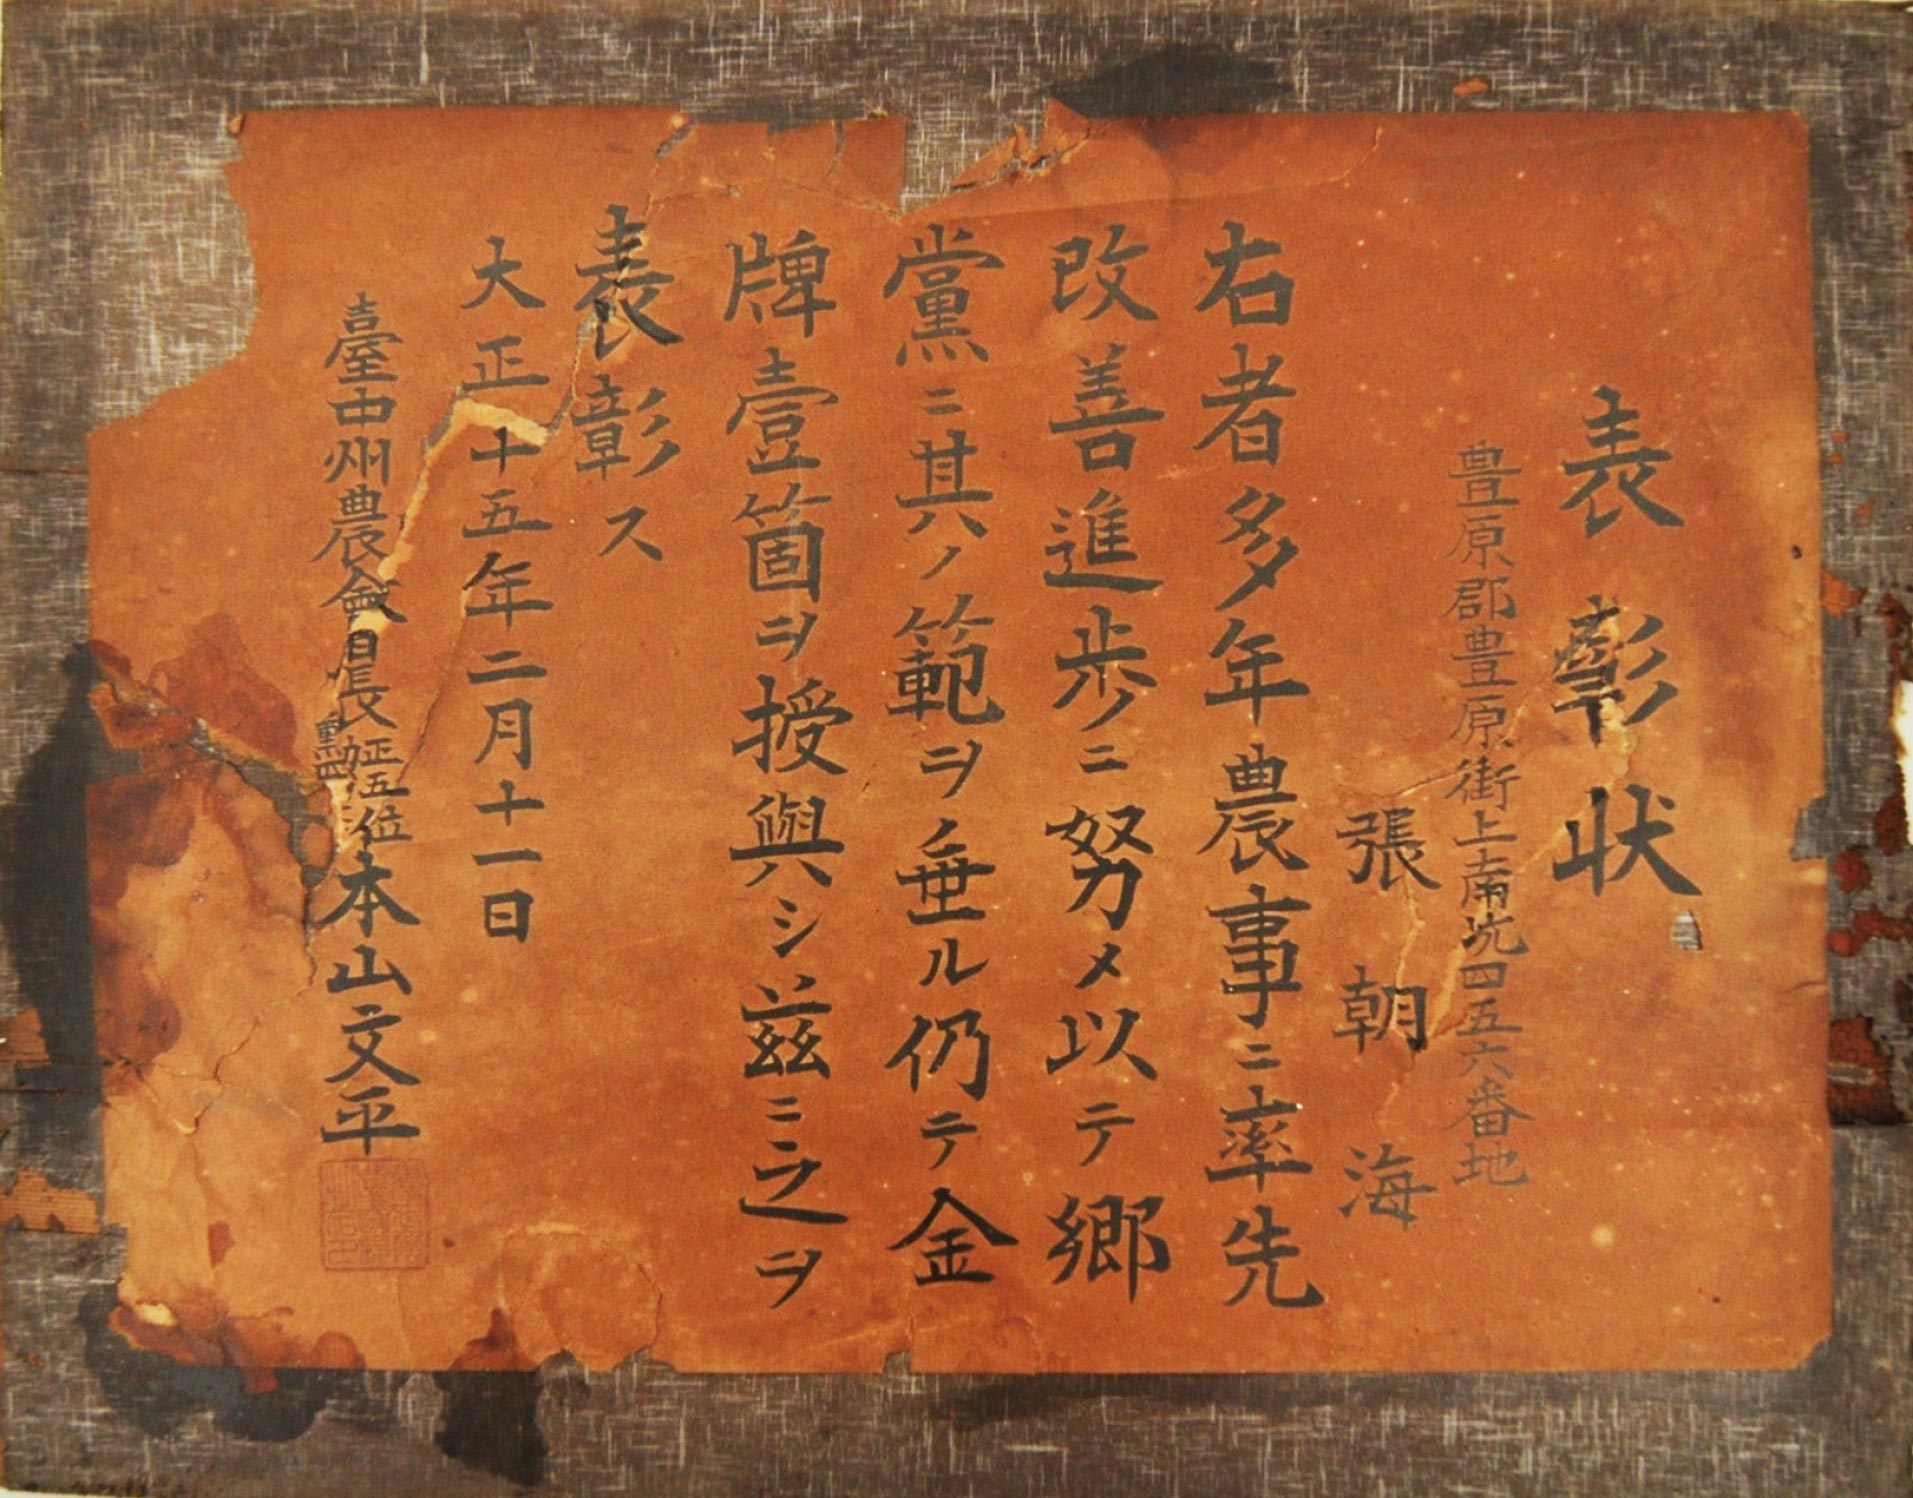 表彰状
豊原郡豊原街上南坑四五六番地
張朝海
右者多年農事ニ率先
改善進歩ニ努メ以テ郷
黨ニ其ノ範ヲ垂ル仍テ金
牌壹箇ヲ授與シ茲ニ之ヲ
表彰ス
大正十五年二月十一日
臺中州農會長正五位勲四等本山文平